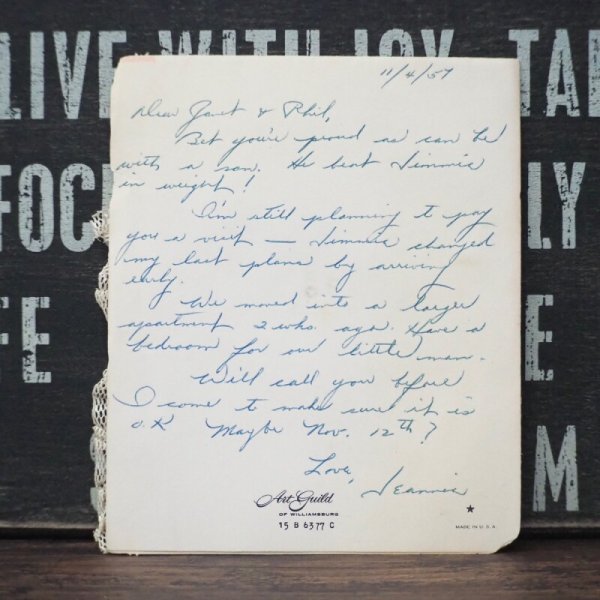 LIVE WITH JOY TA
FOC
LY
FE
E
M
11/4/57
Dear Janet & Phil,
Bet you're proud as can be
with a son. He beat Jimmie
in weight!
I'm still planning to pay
you a visit — Jimmie changed
my last plans by arriving
early.
We moved into a larger
apartment 2 wks. ago. Have a
bedroom for our little man.
Will call you before
I come to make sure it is
O.K Maybe Nov. 12th?
Love,
Jeannie
Art Guild
OF WILLIAMSBURG
15 B 6377 C
MADE IN U.S.A.